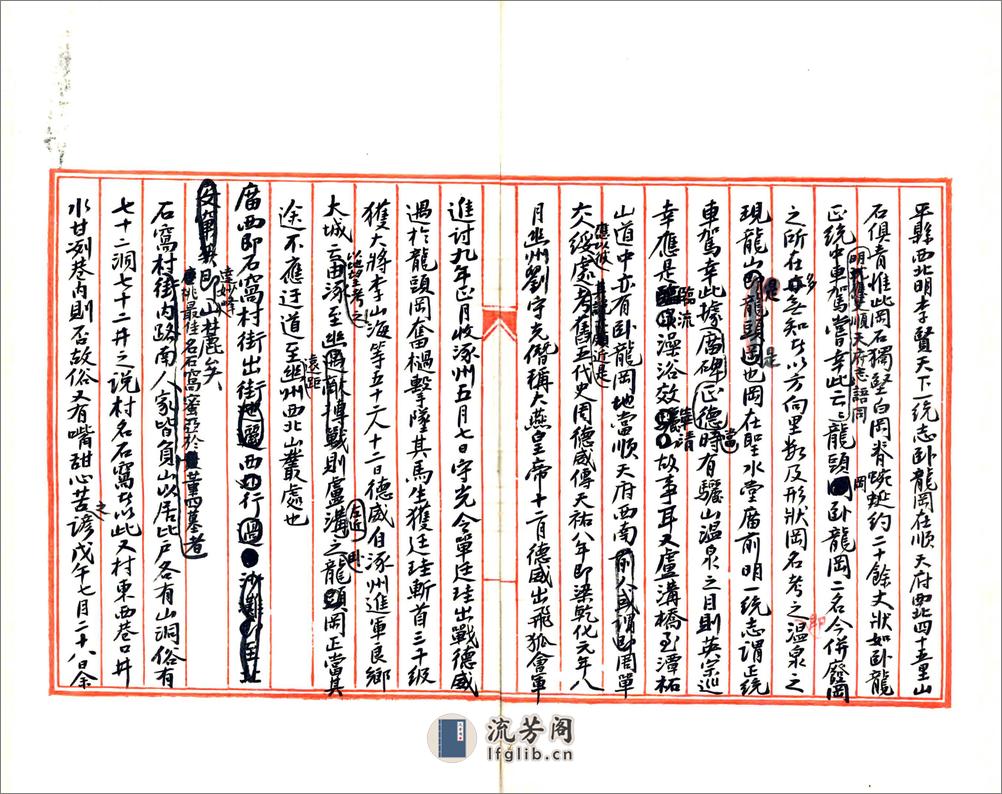 平縣西北明李賢天下一統志卧龍岡在順天府西北四十五里山
石俱青惟此岡石獨堅白岡脊蜿蜒約二十餘丈狀如卧龍
明萬應順天府志語同
正統中車駕嘗幸此云云龍頭卧龍岡二名今併廢岡
之所在多無知者以方向里數及形狀岡名考之溫泉之
現龍山是龍頭岡也岡在聖水堂廟前明一統志謂正統
車駕幸此據廟碑正德時有驪山溫泉之目則英宗巡
幸應是臨流澡浴效華清故事耳又盧溝橋至潭柘
山道中亦有卧龍岡地當順天府西南前人或謂即周單
大戰處考舊五代史周德威傳天祐八年即梁乾化元年八
月幽州劉守光僭稱大燕皇帝十二月德威出飛狐會軍
進討九年正月收涿州五月七日守光令單廷珪出戰德威
遇於龍頭岡奮檛擊墜其馬生獲廷珪斬首三千級
獲大將李山海等五十二人十二日德威自涿州進軍良鄉
大城云云以地望考之由涿至幽遇敵搏戰則盧溝之龍頭岡正當其
途不應迂道至遠距幽州西北山叢處也
廟西即石窩村街出街西行過
即山麓矣
達妙峰
唐桃最佳名石窩蜜亞於董四墓者
石窩村街內路南人家皆負山以居比戶各有山洞俗有
七十二洞七十二井之說村名石窩者以此又村東西巷口井
水甘冽巷內則否故俗又有嘴甜心苦之諺戊午七月二十八日余
流芳阁
lfglib.cn